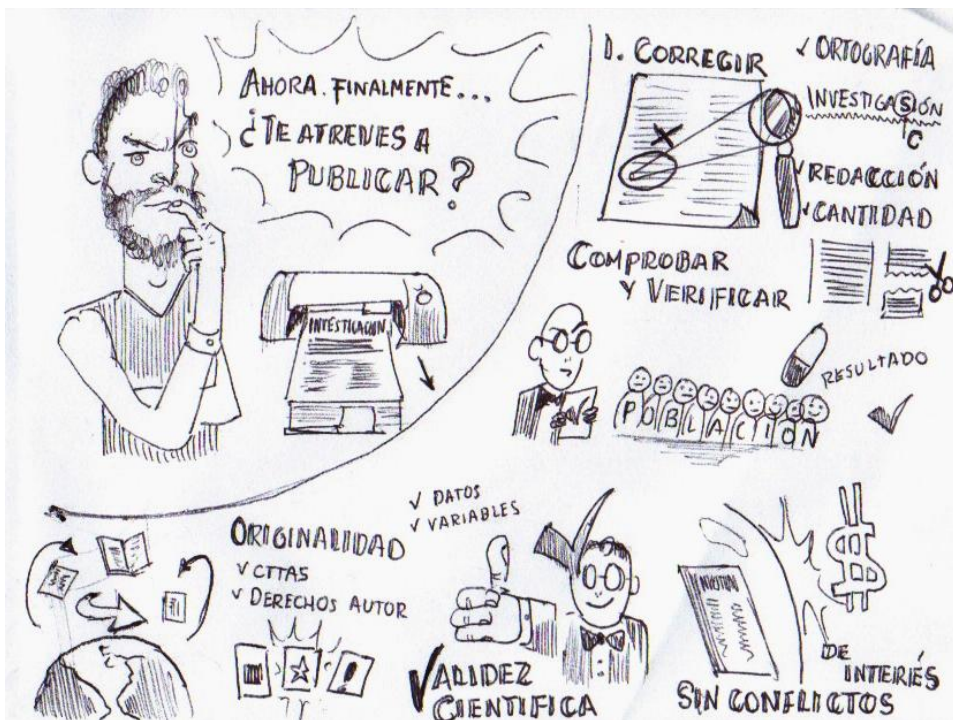 AHORA. FINALMENTE...
¿TE ATREVES A
PUBLICAR?
INVESTIGACION
1. CORREGIR
✓ ORTOGRAFÍA
INVESTIGASIÓN
C
✓ REDACCIÓN
✓ CANTIDAD
COMPROBAR
Y VERIFICAR
RESULTADO
POBLACIÓN
ORIGINALIDAD
✓ CITAS
✓ DERECHOS AUTOR
✓ DATOS
✓ VARIABLES
VALIDEZ
CIENTIFICA
$
DE INTERIÉS
SIN CONFLICTOS